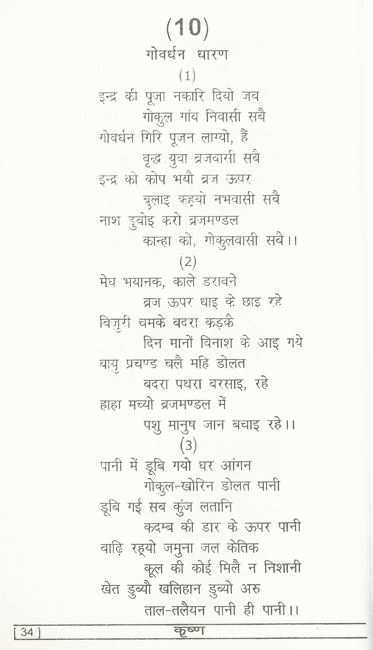 (10)
गोवर्धन धारण
(1)
इन्द्र की पूजा नकारि दियो जब
गोकुल गांव निवासी सबै
गोवर्धन गिरि पूजन लाग्यो, हैं
वृद्ध युवा ब्रजवासी सबै
इन्द्र को कोप भयौ ब्रज ऊपर
बुलाइ कहयो नभवासी सबै
नाश डुवोइ करो ब्रजमण्डल
कान्हा को, गोकुलवासी सबै।।
(2)
मेघ भयानक, काले डरावने
ब्रज ऊपर धाइ के छाइ रहे
बिजुरी चमके बदरा कड़कै
दिन मानों विनाश के आइ गये
वायु प्रचण्ड चलै महि डोलत
बदरा पथरा बरसाइ, रहे
हाहा मच्यो ब्रजमण्डल में
पशु मानुष जान बचाइ रहे।।
(3)
पानी में डूबि गयो घर आंगन
गोकुल-खोरिन डोलत पानी
डूबि गई सब कुंज लतानि
कदम्ब की डार के ऊपर पानी
बाढ़ि रहयो जमुना जल केतिक
कूल की कोई मिलै न निशानी
खेत डुब्यौ खलिहान डुब्यो अरु
ताल-तलैयन पानी ही पानी।।
[34] कृष्ण